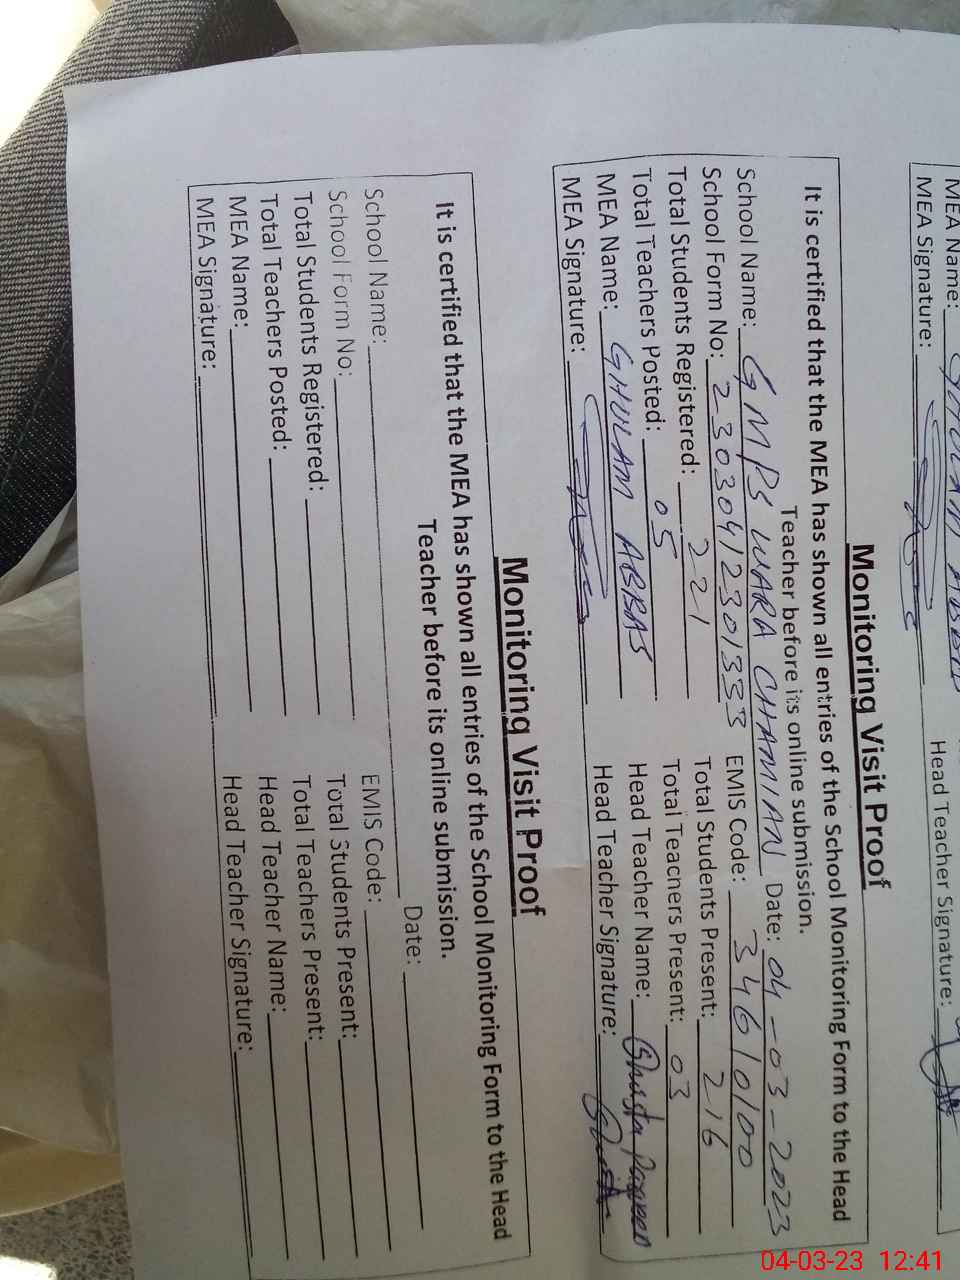 MEA Name:
MEA Signature: Head Teacher Signature:
Monitoring Visit Proof
It is certified that the MEA has shown all entries of the School Monitoring Form to the Head
Teacher before its online submission.
School Name: GMPS WARA CHAMIAN Date: 04-03-2023
School Form No: 23030412301333 EMIS Code: 34610100
Total Students Registered: 221 Total Students Present: 216
Total Teachers Posted: 05 Total Teachers Present: 03
MEA Name: GHULAM ABBAS Head Teacher Name:
MEA Signature: Head Teacher Signature:
Monitoring Visit Proof
It is certified that the MEA has shown all entries of the School Monitoring Form to the Head
Teacher before its online submission.
School Name: Date:
School Form No: EMIS Code:
Total Students Registered: Total Students Present:
Total Teachers Posted: Total Teachers Present:
MEA Name: Head Teacher Name:
MEA Signature: Head Teacher Signature:
04-03-23 12:41